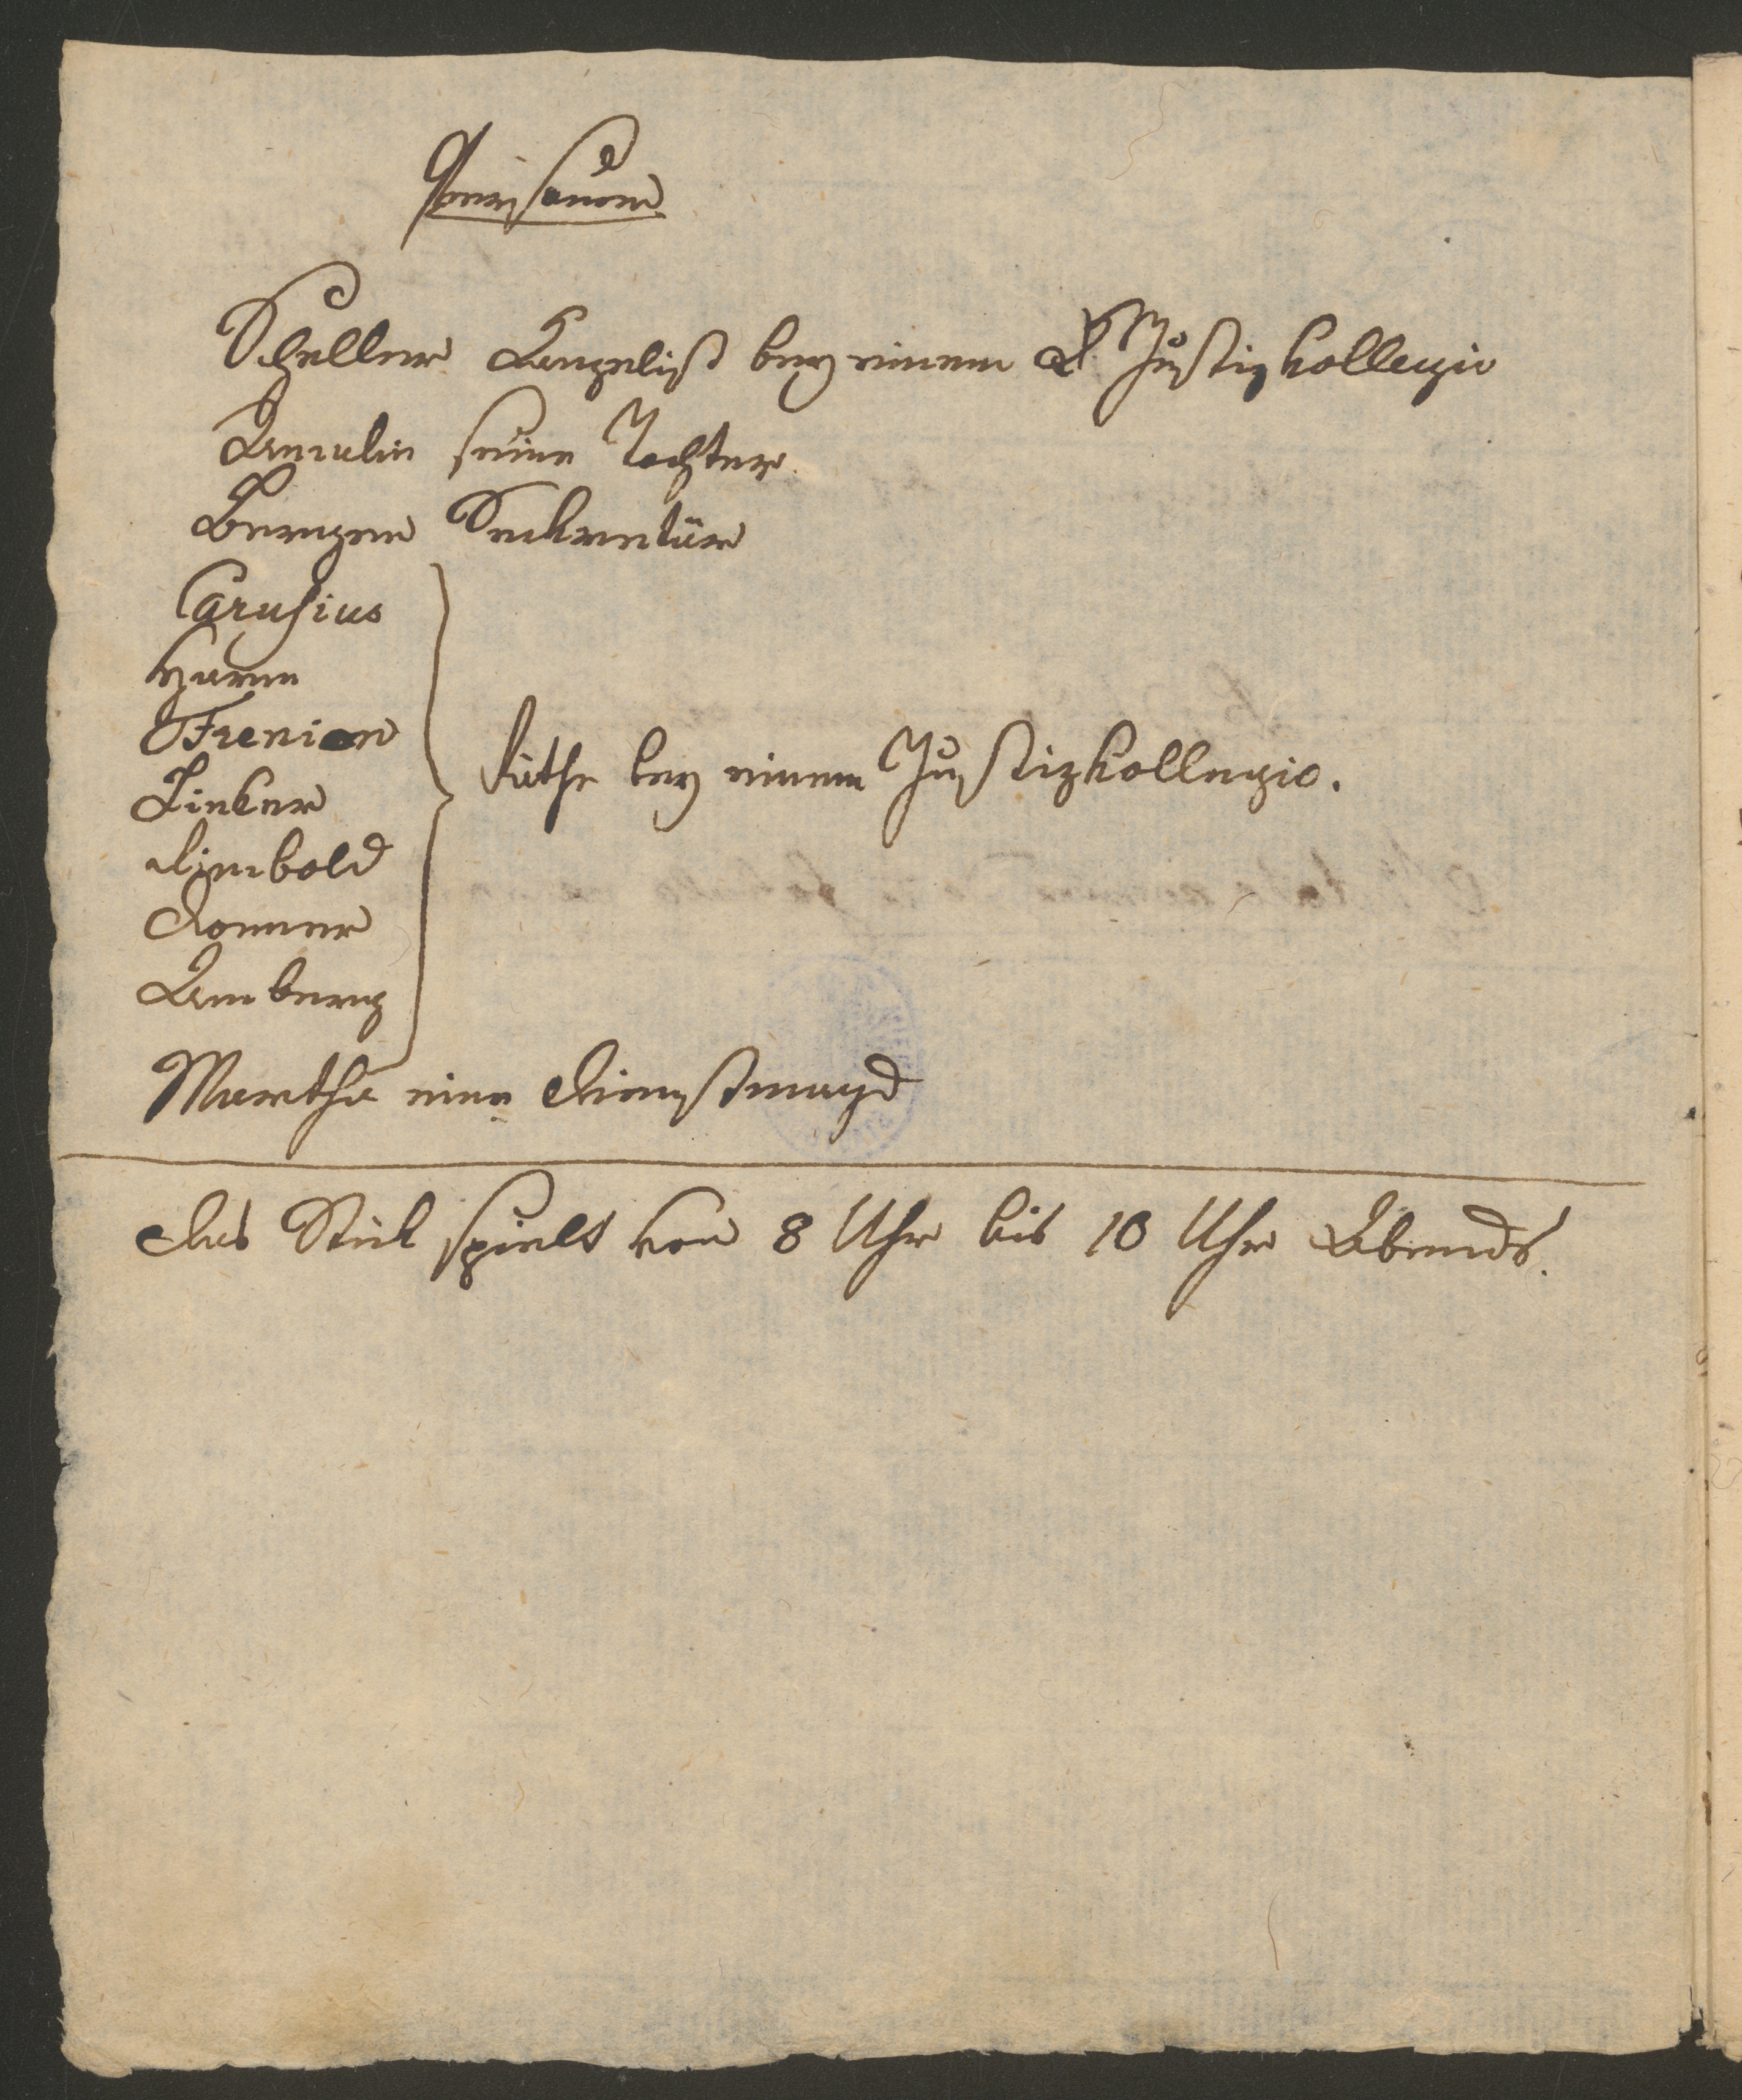 Personen
Scheller Canzelist bey einem Justizkollegio
Amalie seine Tochter.
Bergen Sekretär
Carusius
Harm
Frenion
Linker
Rimbold
Romer
Amberg
Räthe bey einem Justizkollegio.
Marthe eine Dienstmagd
Das Stük spielt von 8 Uhr bis 10 Uhr Abends.